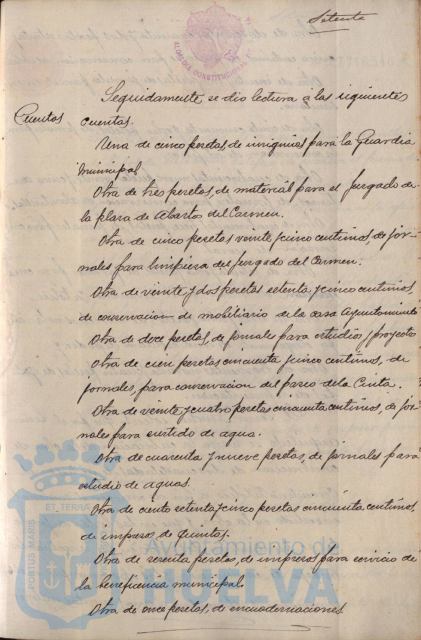 Setenta
ALCALDIA CONSTITUCIONAL
Seguidamente se dio lectura a las siguientes
Cuentas cuentas.
Una de cinco pesetas, de insignias para la Guardia
Municipal
Otra de tres pesetas, de material para el Juzgado de
la plaza de Abastos del Carmen.
Otra de cinco pesetas veinte y cinco centimos, de jor-
nales para limpieza del Juzgado del Carmen.
Otra de veinte y dos pesetas setenta y cinco centimos,
de conservacion de mobiliario de la casa Ayuntamiento
Otra de doce pesetas, de jornales para estudios y proyectos
Otra de cien pesetas cincuenta y cinco centimos, de
jornales, para conservacion del paseo de la Cinta.
Otra de veinte y cuatro pesetas cincuenta centimos, de jor-
nales para surtido de agua.
Otra de cuarenta y nueve pesetas, de jornales para
estudio de aguas.
Otra de ciento setenta y cinco pesetas cincuenta centimos,
de impresos de Quintas.
Otra de sesenta pesetas, de impresos para servicio de
la beneficencia municipal.
Otra de once pesetas, de encuadernaciones
PORTUS MARIS ET TERRAE
Ayuntamiento de
HUELVA